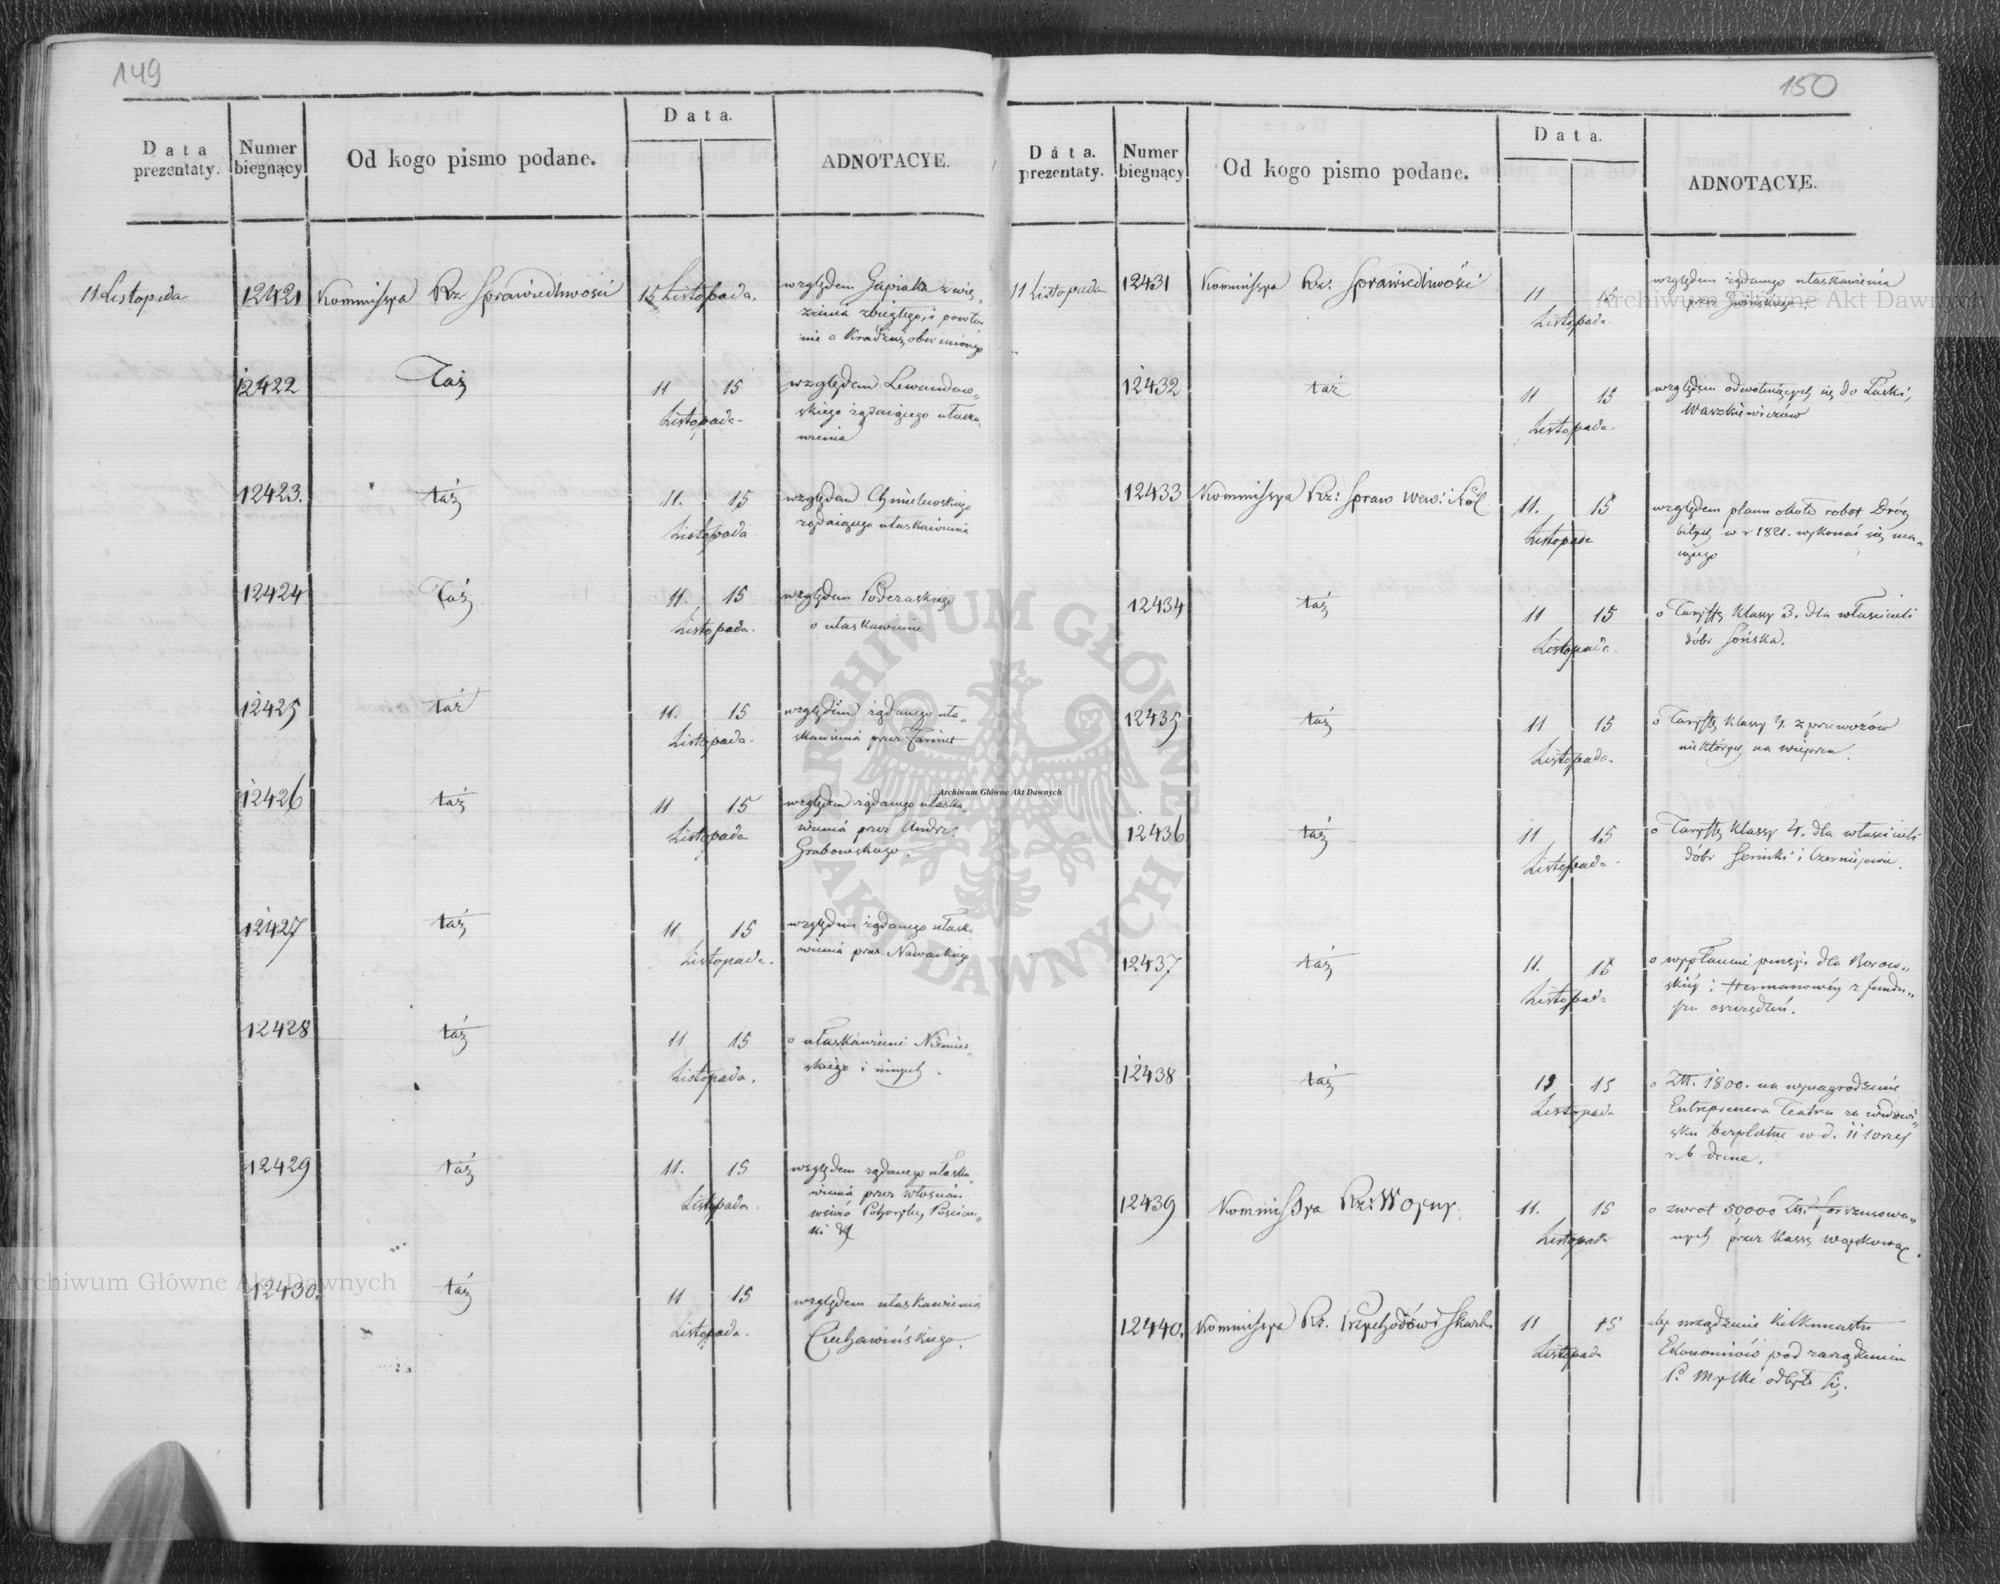 149
Data prezentaty.
Numer biegnący
Od kogo pismo podane.
Data.
ADNOTACYE.
11 Listopada
12421
Kommissya Rz Sprawiedliwości
15 Listopada.
względem Gapiaka z wię„
zienia zbiegłego, i powtór
nie o kradzież obwinionego
12422
Taż
11 15
Listopada
względem Lewandow„
skiego żądaiącego ułaska„
wienia
12423.
taż
11. 15
Listopada
względem Chmielewskiego
żądaiącego ułaskawienia
12424
Taż
11. 15
Listopada.
względem Podczaskiego
o ułaskawienie
12425
taż
11. 15
Listopada
względem żądanego uła„
skawienia przez
12426
taż
11 15
Listopada
względem żądanego ułaska„
wienia przez Andr:
Grabowskiego.
12427
taż
11 15
Listopada.
względem żądanego ułaska
wienia przez Nawackiego
12428
taż
11 15
Listopada.
o ułaskawienie
skiego i innych.
12429
taż
11. 15
Listopada.
względem żądanego ułaska„
wienia przez włościan
12430.
taż
11 15
Listopada.
względem ułaskawienia
Ciechawińskiego.
150
Data. prezentaty.
Numer biegnący
Od kogo pismo podane.
Data.
ADNOTACYE.
11 Listopada
12431
Kommissya Rz: Sprawiedliwości
11 15
Listopada
względem żądanego ułaskawienia
przez
12432
taż
11 15
Listopada
względem odwołuiących się do Łaski,
Waszkiewiczów
12433
Kommissya Rz: Spraw Wew: i Pol.
11. 15
Listopada
względem planu około robot Dróg
bitych w r 1821. wykonać się ma„
iącego
12434
taż
11 15
Listopada.
o Taryffę klassy 3. dla właścicieli
dóbr Sońska.
12435
taż
11 15
Listopada.
o Taryffę klassy 4. z przewozów
niektórych na wieprzu.
12436
taż
11 15
Listopada
o Taryffę klassy 4. dla właścicieli
dóbr Serniki i Czerniejowie.
12437
taż
11. 15
Listopada
o wypłacenie pensyi dla Borow„
skiéy i Hermanowéy z fundu„
szu oszczędzeń.
12438
taż
13 15
Listopada
o Złt. 1800. na wynagrodzenie
Entreprenera Teatru za widowi„
sko bezpłatne w d. 11
r. b dane.
12439
Kommissya Rz: Woyny.
11. 15
Listopada
o zwrot 50000 Złt. forszusowa„
nych przez Kassę woyskową.
12440.
Kommissya Rz. Przychodów i Skarbu
11 15
Listopada
aby urządzenie kilkunastu
Ekonomiów pod zarządzeniem
P. odbyło się.
ARCHIWUM GŁÓWNE AKT DAWNYCH
Archiwum Główne Akt Dawnych
Archiwum Główne Akt Dawnych
Archiwum Główne Akt Dawnych